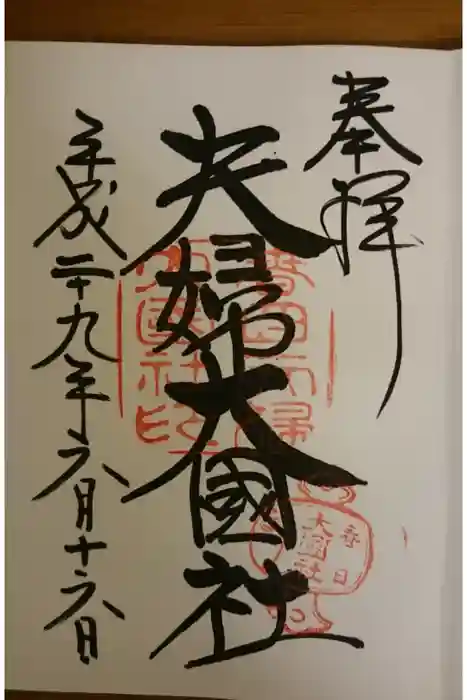 奉拝
夫婦大國社
平成二十九年六月十六日
春日
大國社